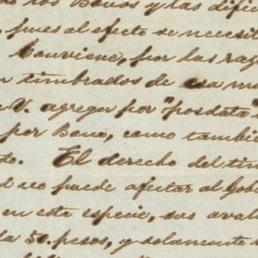 los Bonos y las difi
, pues al efecto se necesit
Conviene, por las raz
n timbrados de esa ma
V. agregar por "posdata"
por Bono, como tambie
do. El derecho del tim
d no puede afectar al Gob
en esta especie, sus aval
da 50. pesos, y solamente s